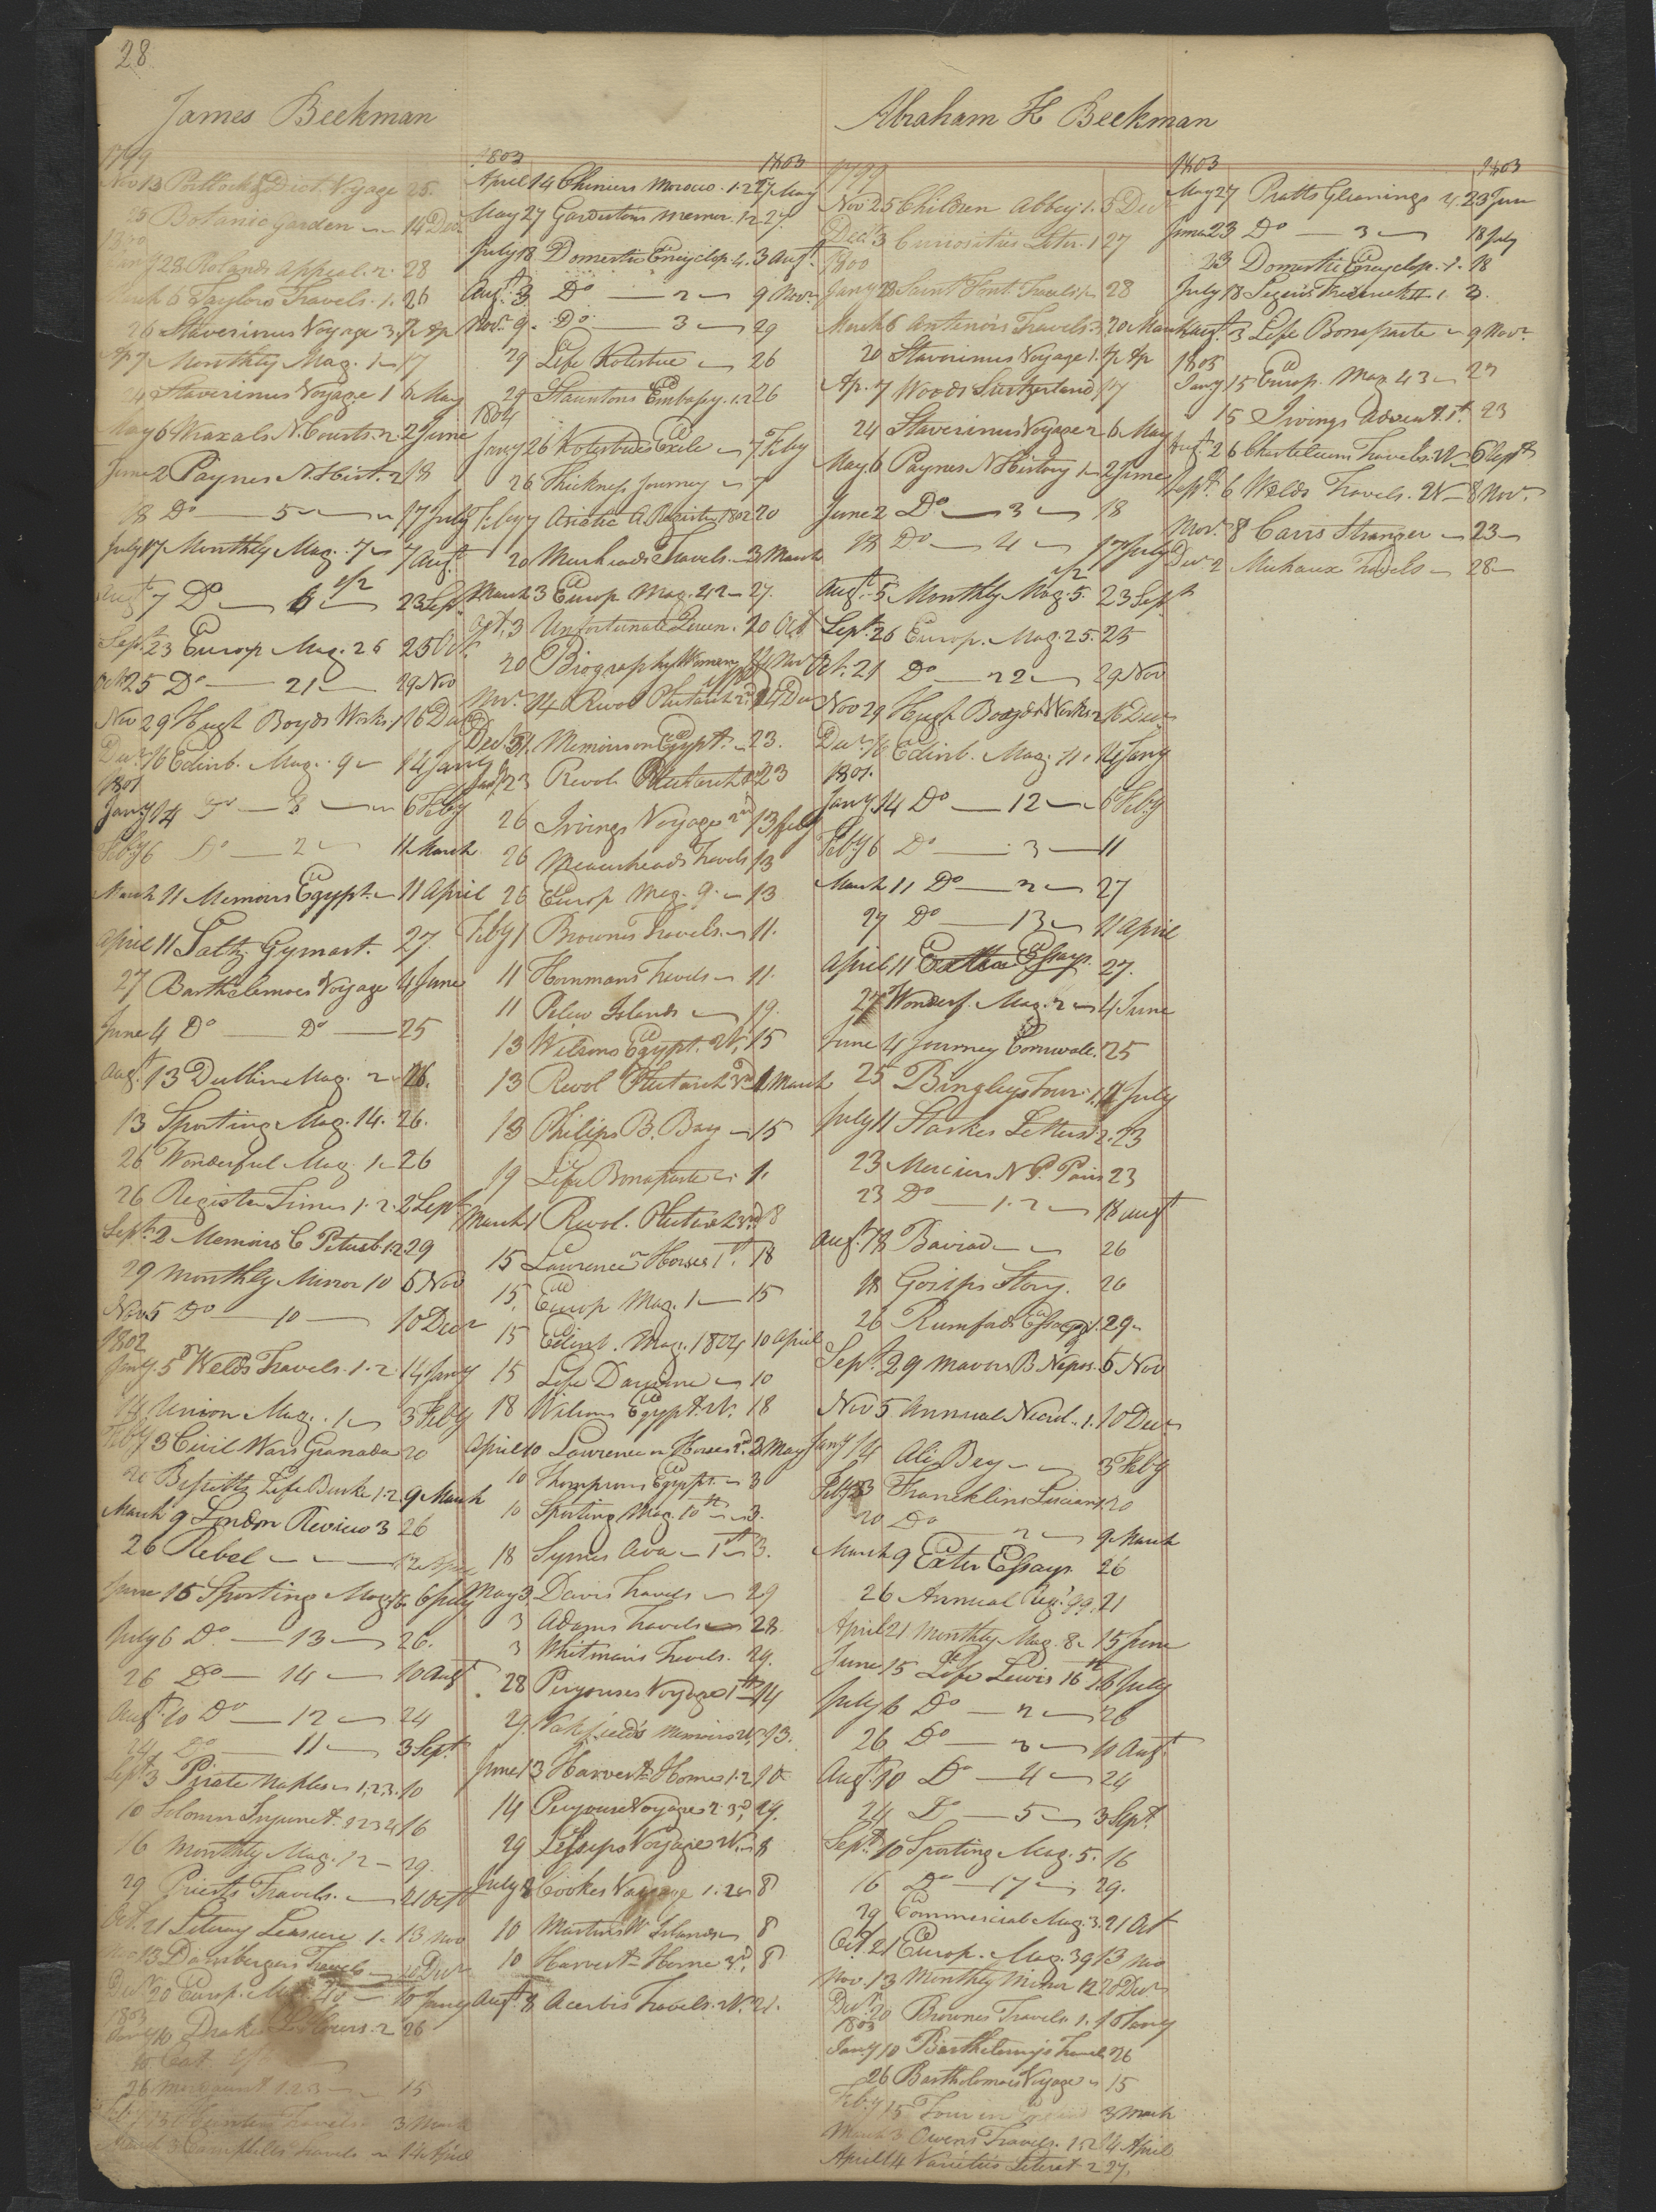 28
James Beekman
1799
Nov 13 Portlock & Dixt. Voyage 25.
25 Botanic Garden 14 Decr
1800
Jany 28 Rolands Appeal. 2. 28
March 6 Taylors Travels. 1. 26
26 Staverinus Voyage 3. 7 Ap
Ap 7 Monthly Mag. 1 17
24 Staverinus Voyage 1 6 May
May 6 Wraxals N. Courts. 2. 2 June
June 2 Paynes N. Hist. 2 18
18 Do 5 17 July
July 17 Monthly Mag. 7 7 Augt
Augt 7 Do 6 1/2 23 Sept
Sept 23 Europ Mag. 26 25 Oct.
Oct 25 Do 21 29 Nov
Nov 29 Hugh Boyds Works 1 16 Decr
Decr 16 Edinb. Mag. 9 14 Jany
1801
Jany 14 Do 6 Feby
Feby 6 Do 2 11 March
March 11 Memoirs Egypt. 11 April
April 11 Saltz Gymast. 27.
27 Barthelemos Voyage 4 June
June 4 Do Do 25
Augt. 13 Dublin Mag. 2 26.
13 Sporting Mag. 14. 26.
26 Wonderful Mag. 1 26
26 Register Times 1. 2. 2 Sept
Sept. 2 Memoirs C Petersb. 1.2 29
29 Monthly Mirror 10 5 Nov
Nov 5 Do 10 10 Decr
1802
Jany. 5 Welds Travels. 1. 2. 14 Jany
14 Union Mag. 1 3 Feby
Feby 3 Civil Wars Granada 20
20 Bissetts Life Burke 1. 2. 9 March
March 9 London Review 3 26
26 Rebel 12 Apr
June 15 Sporting Mag. 6 July
July 6 Do. 13 26.
26 Do 14 10 Augt
Augt. 10 Do 12 24
24 Do 11 3 Sept.
Sept 3 Pirate Naples 1. 2. 3. 10
10 Solomn Injunct. 1 2 3 4 16
16 Monthly Mag. 12 29.
29 Priests Travels. 21 Oct
Oct. 21 Literary Leasure 1. 13 Nov
Nov 13 Dambergers Travels 20 Decr
Decr 20 Europ. Mag 40 10 Jany
1803
Jany 10 Drakes L. Hours. 2 26
10 Cat.
26 Mordaunt 1 2 3 15
3 March
March 3 Campbells Travels 14 April
1803 1803
April 14 Cheniers Morocco. 1. 2 27 May
May 27 Gardestons Memor. 1.2 27.
July 18 Domestic Encyclop. 4. 3 Augt.
Augt. 3 Do 2 9 Novr
Novr. 9. Do 3 29
29 Life Kotzebue 26
29 Stauntons Embassy. 1.2 26
1804
Jany 26 Kotzebues Exile 7 Feby
26 Thickness Journey 7
Feby 7 Asiatic A. Register 1802 20
20 Murheads Travels. 3 March
March 3 Europ. Mag. 42 27.
Oct. 3 Unfortunate Queen. 20 Oct
20 Biography Women 14 Novr
Novr. 14 Revol Plutarch 2. Decr
Decr 31. Memoirs on Egypt. 23.
Jany 23 Revol Plutarch 23
26 Irvings Voyage 2nd 13 Feby
26 Meuerheads Travels 13
26 Europ Mag. 9. 13
Feby 1 Brownes Travels. 11.
11 Hornmans Travels 11.
11 Pelew Islands 19.
13 Wilsons Egypt. W. 15
13 Revol Plutarch 1 March
13 Philips B. Bay 15
19 Life Bonaparte 1.
March 1 Revol. Plutarch 3rd 8
15 Lawrence on Horses 1st. 18
15. Europ Mag. 1 15
15 Edinb. Mag. 1804 10 April
15 Life Darwine 10
18 Wilsons Egypt. W. 18
April 10 Lawrence on Horses 2d. 3 May
10 Thompsons Egypt. 3
10 Sporting Mag. 10th 3.
18 Symes Ava 1st 3.
May 3. Davis Travels 29
3 Adams Travels 28.
3 Whitmans Travels. 29.
28 Peyrouses Voyage 1st 14
29 Wakefields Memoirs W. 13.
June 13 Harvest Home 1. 2 10
14 Peyrouse Voyage 2. 3d, 29.
29 Lesseps Voyage W. 8
July 8 Cookes Voyage 1. 2 8
10 Martins W Islands 8
10 Harvest Home 3d. 8
Augt 8 Acerbis Travels. W. 21.
Abraham K Beekman
1799
Nov 25 Children Abbey. 1. 5 Decr
Decr. 3 Curiosities Liter. 1 27
1800
Jany 28 Saint Font. Travels 28
March 6 Antenors Travels. 3 20 March
20 Staverinus Voyage 1. 7 Ap
Ap. 7 Woods Switzerland 17
24 Staverinus Voyage 2 6 May
May 6 Paynes N History 1 2 June
June 2 Do 3 18
18 Do 4 17 July
Augt. 5 Monthly Mag. 5. 1/2 23 Sept
Sept. 26 Europ. Mag. 25. 25
Oct. 21 Do 22 29 Nov
Nov 29 Hugh Boyds Works 2 16 Decr
Decr 16 Edinb. Mag. 11. 14 Jany
1801.
Jany 14 Do 12 6 Feby
Feby 6 Do 3 11
March 11 Do 2 27
27 Do 13 11 April
April 11 Exeter Essays. 27.
27 Wonderf. Mag. 2 4 June
June 4 Journey Cornwall. 25
25 Bingleys Tour. 1. 11 July
July 11 Starkes Letters 2. 23
23 Merciers N. P. Paris 23
23 Do 1. 2 18 Augt
Augt. 18 Baviad 26
18 Gosips Story. 26
26 Rumfords Essays 1. 29
Sept. 29 Mavors B. Nepos. 5 Nov
Nov 5 Annual Necrol. 1. 10 Decr
Jany 14 Ali Bey 3 Feby
Feby 3 Francklins Lucian 20
20 Do 2 9 March
March 9 Exeter Essays. 26
26 Annual Regr. 99. 21
April 21 Monthly Mag. 8. 15 June
June 15 Life Lewis 16th 6 July
July 6 Do 2 26
26 Do 3 10 Augt.
Augt. 10 Do 4 24
24 Do 5 3 Sept.
Sept. 10 Sporting Mag. 5. 16
16 Do 17 29.
29 Commercial Mag. 3. 21 Oct
Oct. 21 Europ. Mag. 39 13 Nov
Nov. 13 Monthly Mirror 12 20 Decr
Decr. 20 Brownes Travels. 1. 10 Jany
1803
Jany 10 Barthelemys Travels 26
26 Bartholomew Voyage 15
Feby 15 Tour in 3 March
March 3 Owens Travels. 1. 2 14 April
April 14 Varieties Literat. 2 27.
1803 1803
May 27 Pratts Gleanings 4. 23 June
June 23 Do 3 18 July
23 Domestic Encyclop. 1. 18
July 18 Segurs Frederick II. 1. 3.
Augt. 3 Life Bonaparte 9 Novr.
1805
Jany 15 Europ. Mag 43 23
15 Irvings Advent. 1st. 23
Augt. 26 Chastelleux Travels. W 6 Septr
Septr. 6 Welds Travels. W 8 Novr.
Novr. 8 Carrs Stranger 23
Decr 2 Michaux Travels 28